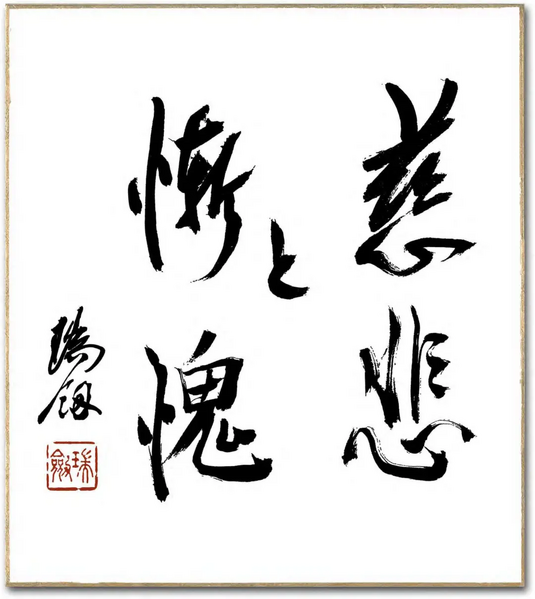 慈悲
と
慚愧
瑞釼